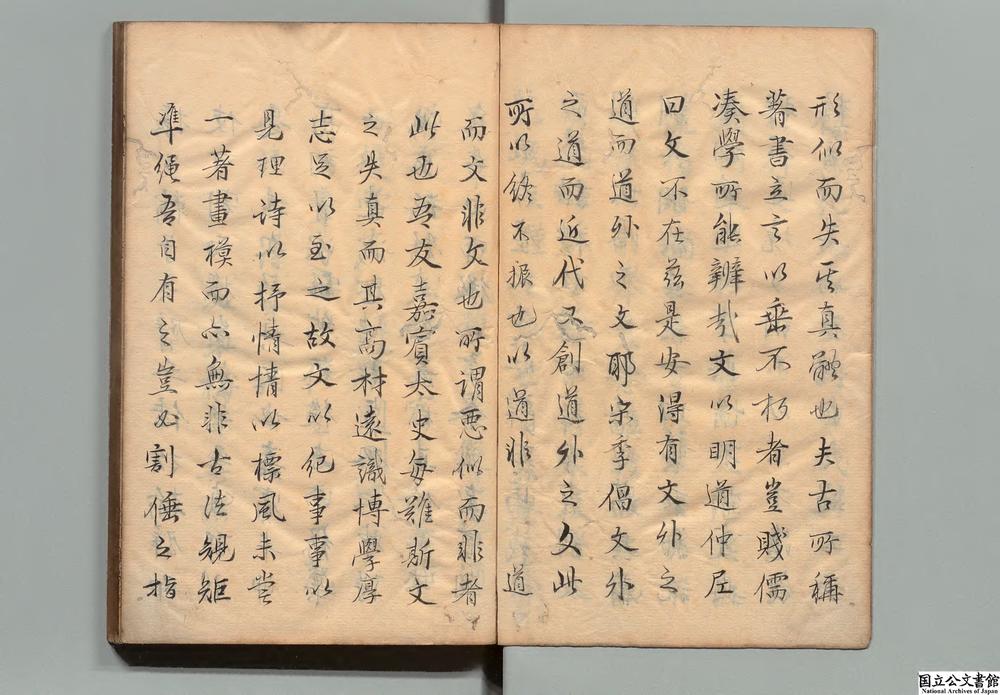 形似而失其真難也夫古所稱
著書立言以垂不朽者豈賤儒
湊學所能辦哉文以明道仲尼
曰文不在茲是安得有文外之
道而道外之文耶宋季倡文外
之道而近代又創道外之文此
所以終不振也以道非道
而文非文也所謂惡似而非者
此也吾友嘉賓太史每難斯文
之失真而其高材遠識博學厚
志足以至之故文以紀事事以
見理詩以抒情情以標風未嘗
一著畫模而亦無非古法規矩
準繩吾自有之豈必割倕之指
国立公文書館
National Archives of Japan